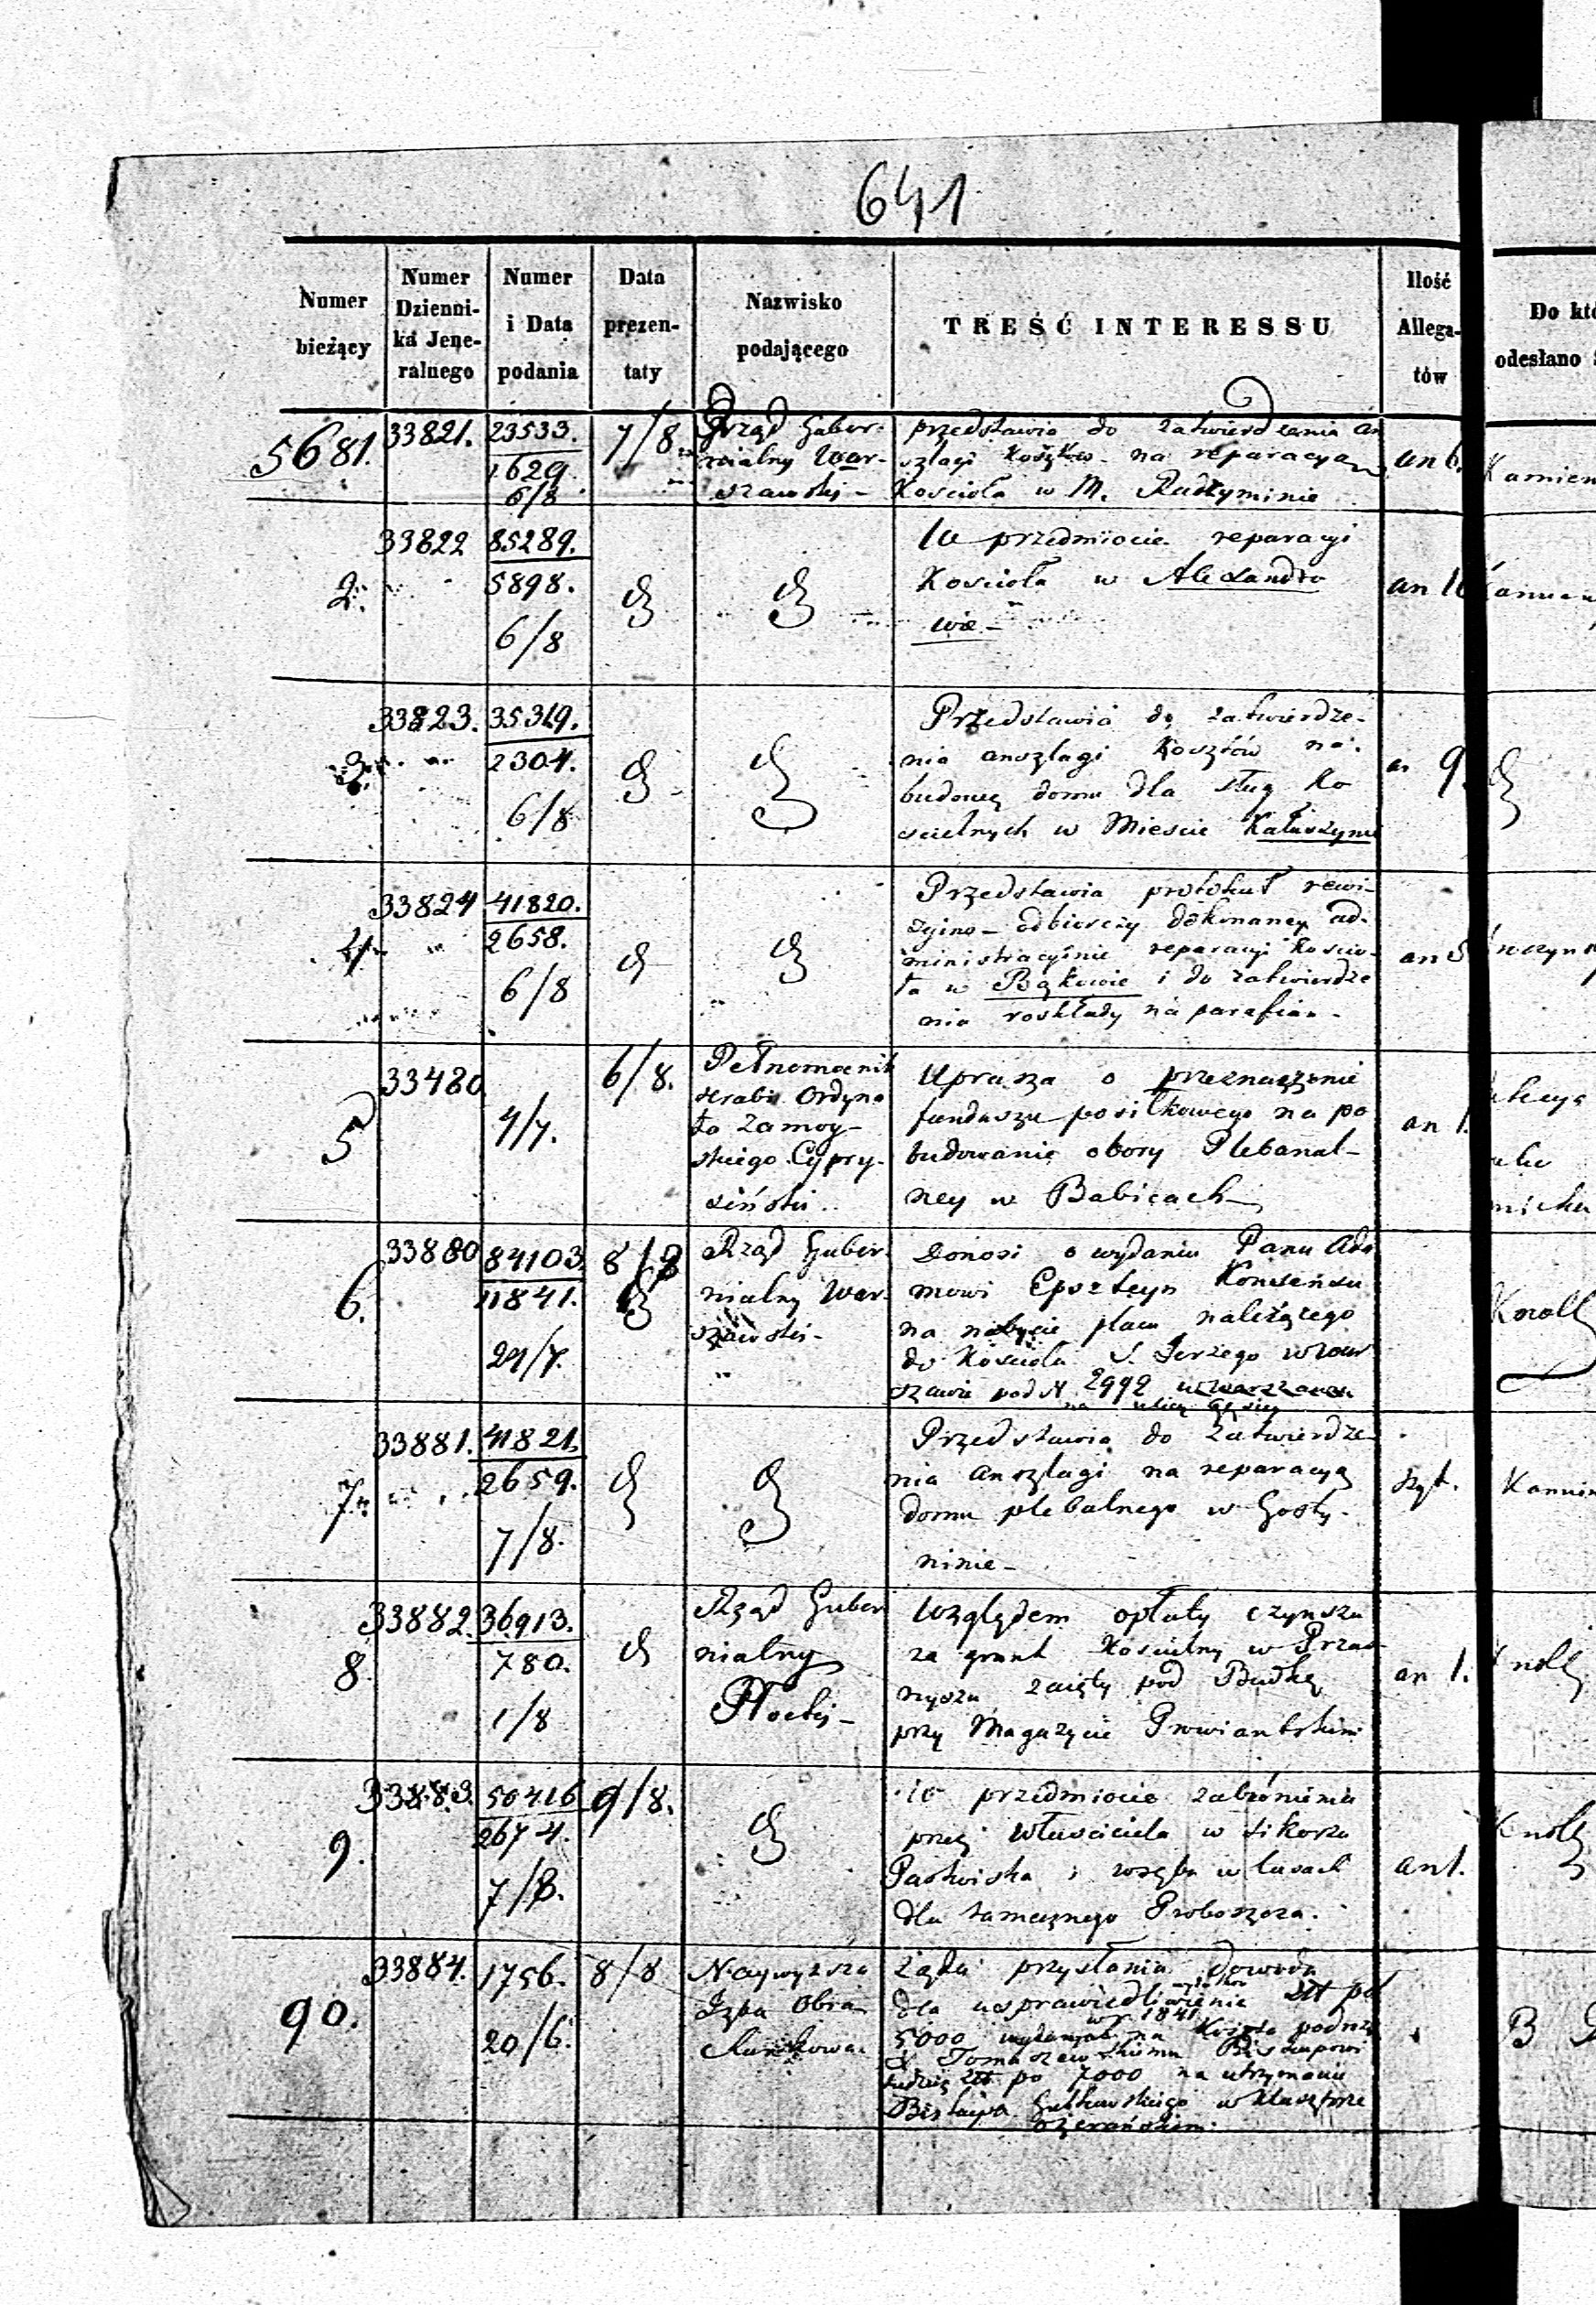 641
Numer bieżący
Numer Dzienni-ka Jene-ralnego
Numer i Data podania
Data prezen-taty
Nazwisko podającego
TREŚĆ INTERESSU
Ilość Allega-tów
Do któ
odesłano
5681. 33821. 23533. 1629. 6/8 7/8
Rząd Guber-
nialny War-
szawski -
przedstawia do zatwierdzenia an
szlagi kosztów na reparacyą
Kościoła w M. Radzyminie
an 6.
Kamien
2. 33822 85289. 5898. 6/8
W przedmiocie reparacyi
Kościoła w Alexandro
wie -
an 10
3. 33823. 35319. 2304. 6/8
Przedstawia do zatwierdze-
nia anszlagi kosztów na
budowę domu dla sług ko
scielnych w Miescie Kałuszynie
an 9.
4. 33824 41820. 2658. 6/8
Przedstawia protokuł rewi-
zyino - odbiorczy dokonaney ad-
ministracyinie reparacyi kościo-
ła w Bąkowie i do zatwierdze
nia roskłady na parafian -
an 5
5 33480 4/7. 6/8.
Pełnomocnik
Hrabi Ordyna
ta Zamoy-
skiego Cypry-
siński
Uprasza o przeznaczenie
funduszu posiłkowego na po
budowanie obory Plebanal-
ney w Babicach -
an 1.
6. 33880 84103. 11841. 29/7. 8/8
Rząd Guber-
nialny War-
szawski -
Donosi o wydaniu Panu Ada
mowi Epszteyn Konsensu
na nabycie placu należącego
do Kościoła S. Jerzego w War
szawie pod N 2992 w Warszawie
na ulicy Gęsiey
Knoll
7. 33881. 41821. 2659. 7/8.
Przedstawia do zatwierdze-
nia anszlagi na reparacyą
domu plebalnego w Gosty-
ninie -
szyt.
Kamien
8 33882. 36913. 780. 1/8
Rząd Guber
nialny
Płocki -
Względem opłaty czynszu
za grunt kościelny w Przas
nyszu zaięty pod Budkę
przy Magazynie Prowiantskim
an 1.
Knoll
9. 33883. 50416 2674. 7/8. 9/8.
W przedmiocie zabronienia
przez właściciela w Sikorzu
Pastwiska i wrębu w lasach
dla tamecznego Proboszcza.
an 1.
Knoll
90. 33884. 1756. 20/6. 8/8
Naywyższa
Izba Obra
chunkowa.
Żąda przysłania dowodu
dla usprawiedliwienia wydatków Złt pl
w r. 1841
5000 wydanych na
X Tomaszewskiemu
Złt po 7000 na utrzymanie
Biskupa Gutkowskiego w klasztorze
Ozerańskim.
B